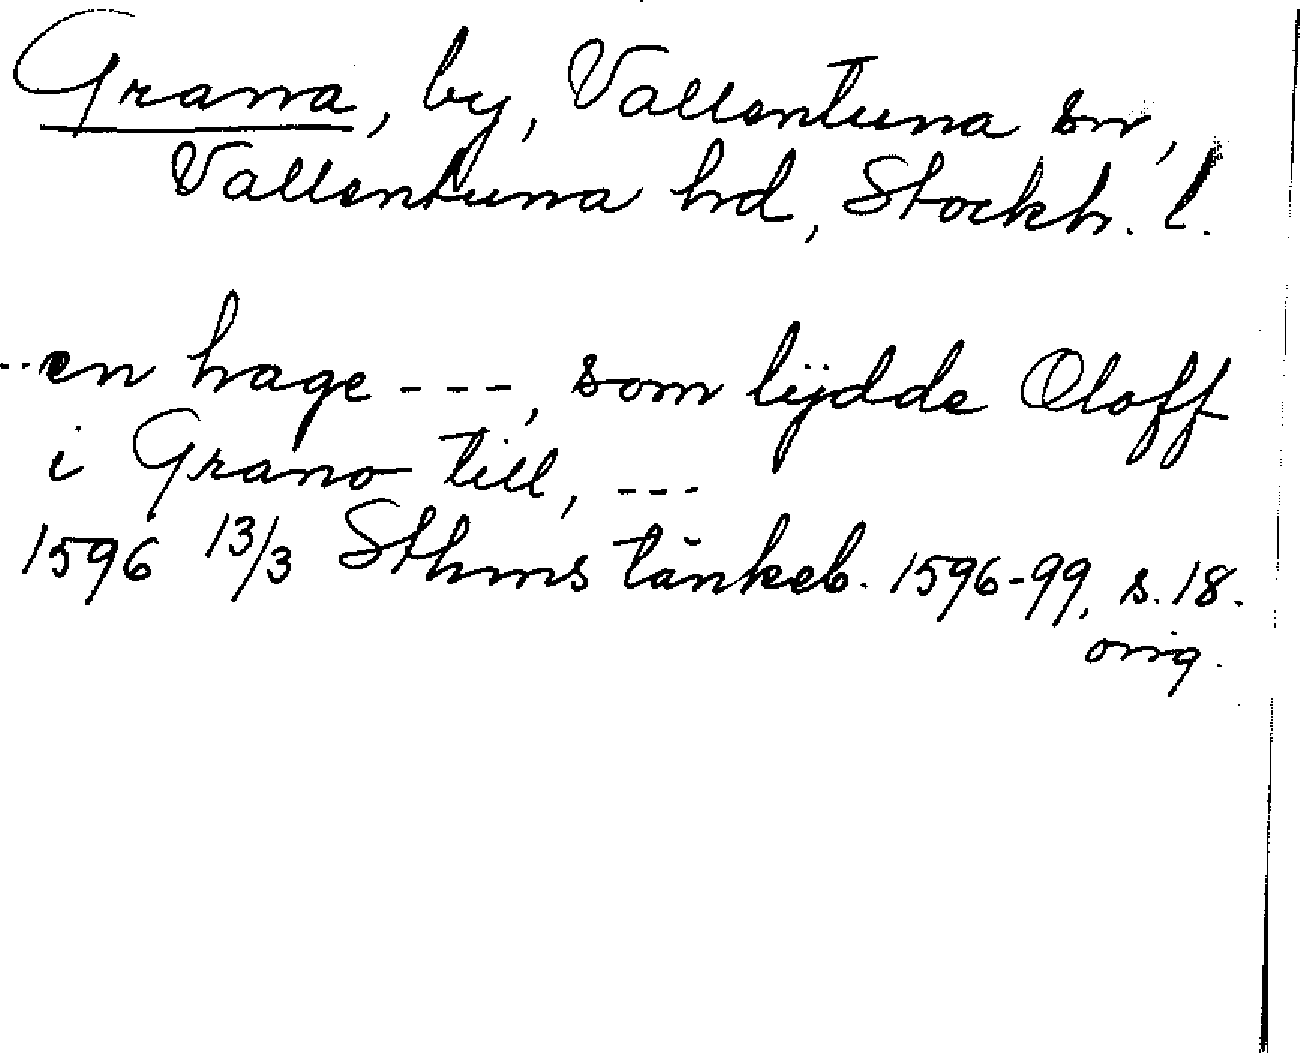 Grana, by, Vallentuna sn,
Vallentuna hd, Stockh. l.
--en hage ---, som lÿdde Oloff
i Grano till, ---
1596 13/3 Sthms tänkeb. 1596-99, s. 18.
orig.